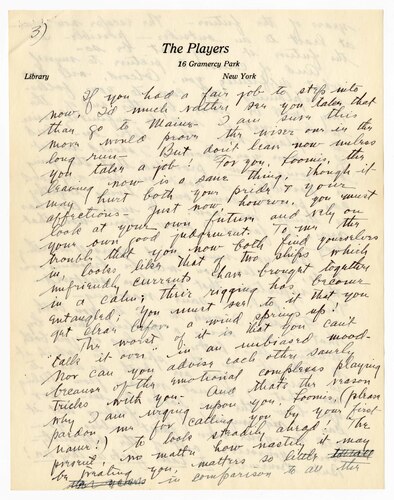 3)
The Players
16 Gramercy Park
Library New York
If you had a fair job to step into
now, I'd much rather see you take that
than go to Maine. I am sure this
move would prove the wiser one in the
long run. But don't leave now unless
you take a job! For you, Loomis, the
leaving now is a sane thing, though it
may hurt both your pride & your
affections. Just now, however, you must
look at your own future and rely on
your own good judgement. To me the
trouble that you now both find yourselves
in, looks like that of two ships which
unfriendly currents have brought together
in a calm; their rigging has become
entangled; you must see to it that you
get clear before a wind springs up!
The worst of it is that you can't
"talk it over" in an unbiased mood.
Nor can you advise each other sanely
because of the emotional complexes playing
tricks with you. And that's the reason
why I am urging upon you, Loomis, (please
pardon me for calling you by your first
name!) to look steadily ahead! The
present, no matter how nastily it may
be treating you, matters so little
in comparison to all the